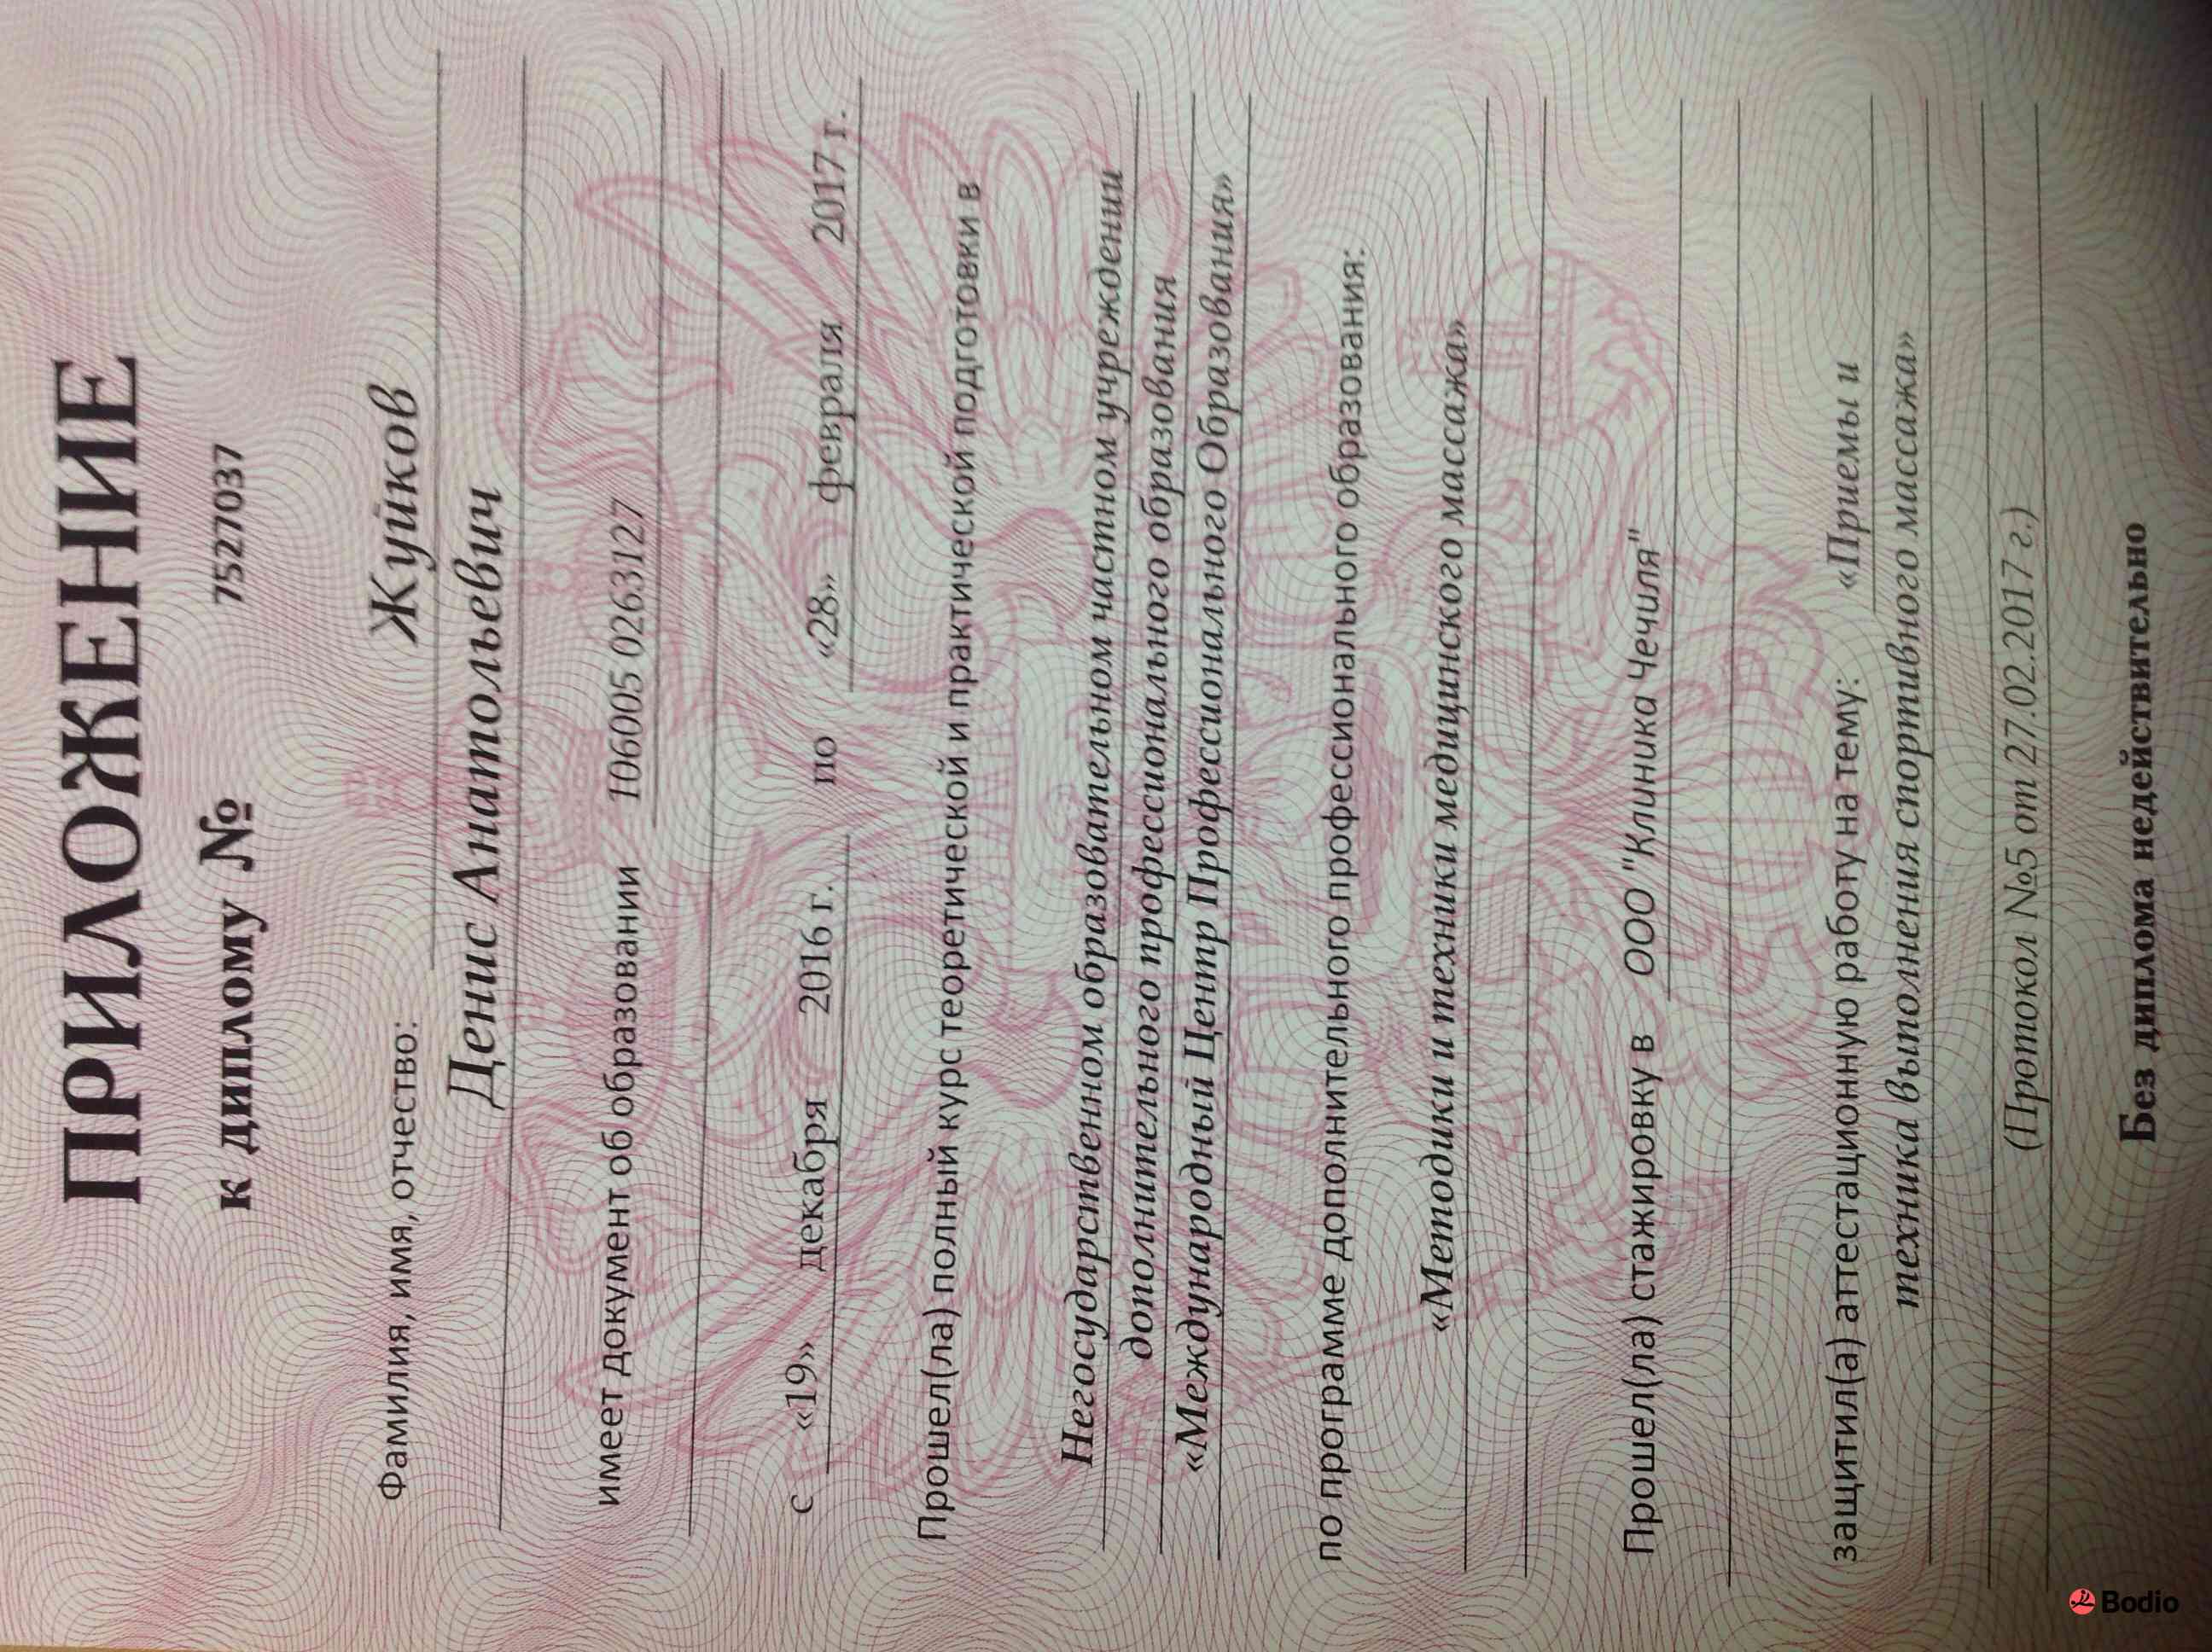 ПРИЛОЖЕНИЕ
к диплому № 7527037
Фамилия, имя, отчество: Жуйков
Денис Анатольевич
имеет документ об образовании 106005 0263127
с «19» декабря 2016 г. по «28» февраля 2017 г.
Прошел(ла) полный курс теоретической и практической подготовки в
Негосударственном образовательном частном учреждении
дополнительного профессионального образования
«Международный Центр Профессионального Образования»
по программе дополнительного профессионального образования:
«Методики и техники медицинского массажа»
Прошел(ла) стажировку в ООО "Клиника Чечиля"
защитил(а) аттестационную работу на тему: «Приемы и
техника выполнения спортивного массажа»
(Протокол №5 от 27.02.2017 г.)
Без диплома недействительно
Bodio